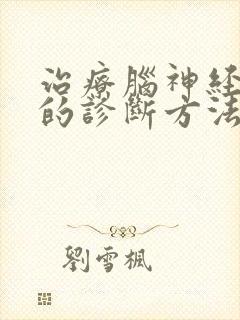 治療腦神経
的診斷方法
劉雪楓